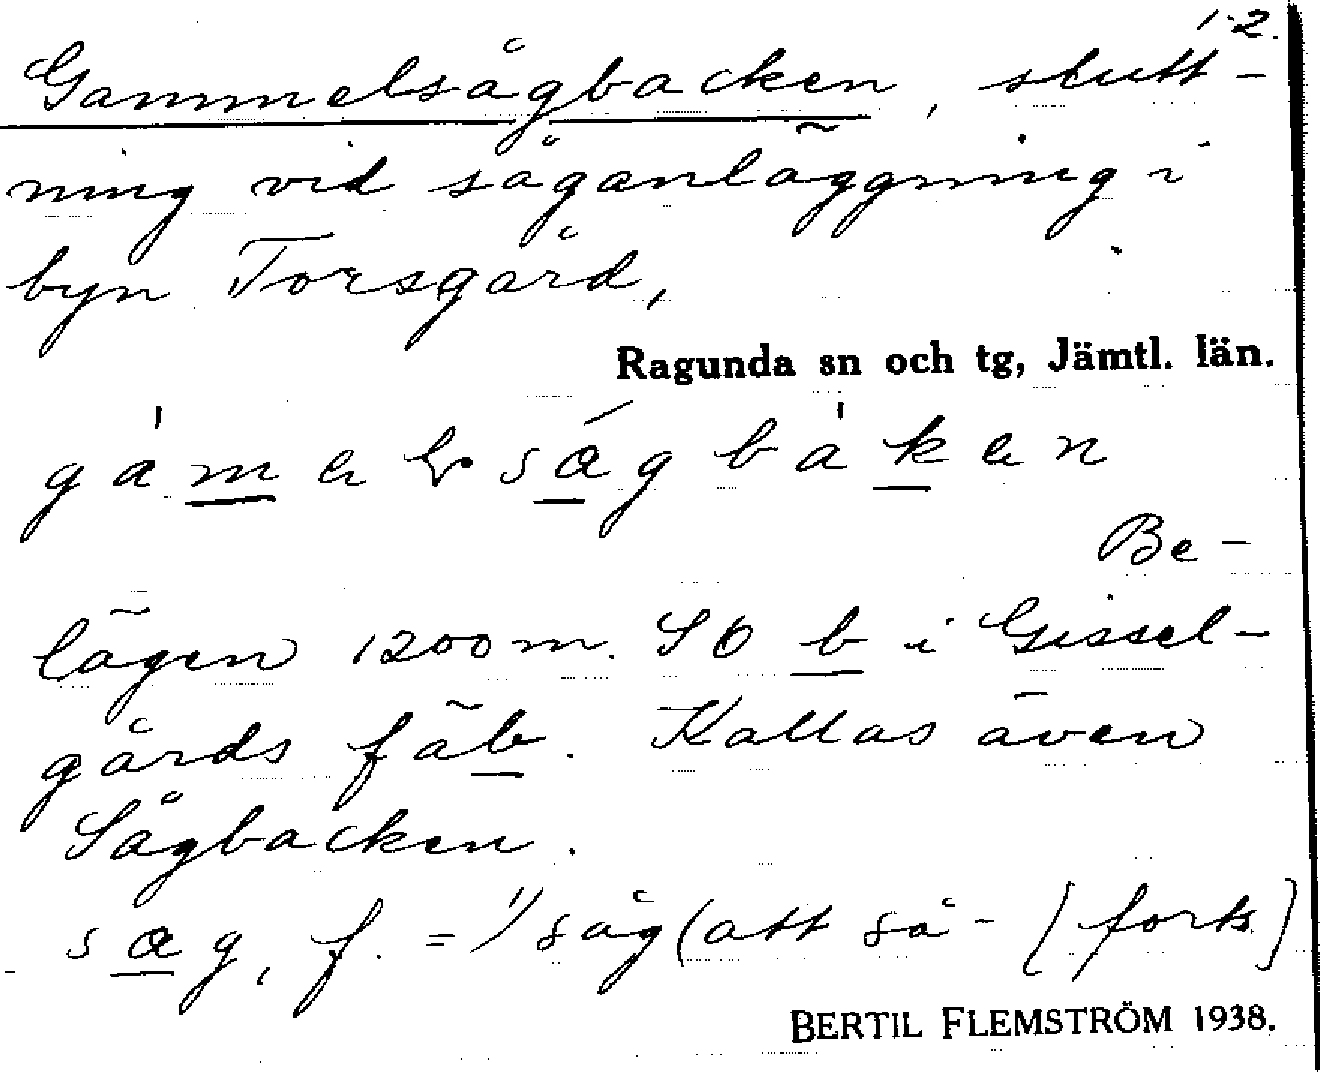 1.2.
Gammelsågbacken, slutt-
ning vid såganläggning i
byn Torsgård,
Ragunda sn och tg, Jämtl. län.
Be-
lägen 1200 m. SO b i Gissel-
gårds fäb. Kallas även
Sågbacken.
sag, f. = 1/ såg (att så- [forts.]
BERTIL FLEMSTRÖM 1938.